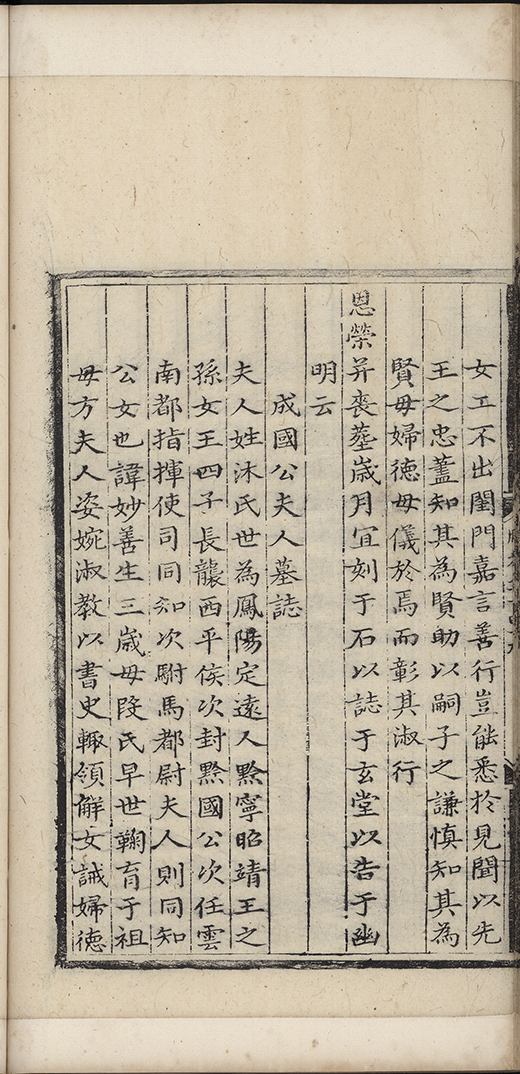 女工不出閨門嘉言善行豈能悉於見聞以先
王之忠藎知其為賢助以嗣子之謙慎知其為
賢母婦德母儀於焉而彰其淑行
恩榮并喪塟歲月宜刻于石以誌于玄堂以告于幽
明云
成國公夫人墓誌
夫人姓沐氏世為鳳陽定遠人黔寧昭靖王之
孫女王四子長襲西平侯次封黔國公次任雲
南都指揮使司同知次駙馬都尉夫人則同知
公女也諱妙善生三歲母段氏早世鞠育于祖
母方夫人姿婉淑教以書史輒領解女誡婦德